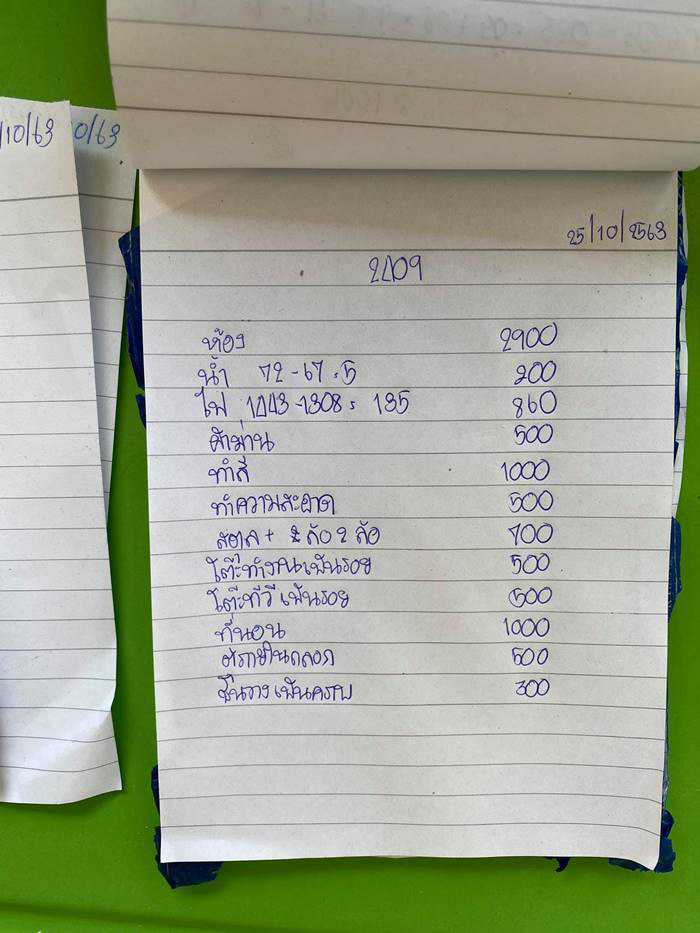 /10/63
0/63
25/10/2563
2409
ห้อง 2900
น้ำ 72-67=5 200
ไฟ 1443-1308= 135 860
ผ้าม่าน 500
ทำสี 1000
ทำความสะอาด 500
700
โต๊ะทำงานเป็นรอย 500
โต๊ะทีวีเป็นรอย 500
ที่นอน 1000
500
ชั้นวางเป็นคราบ 300